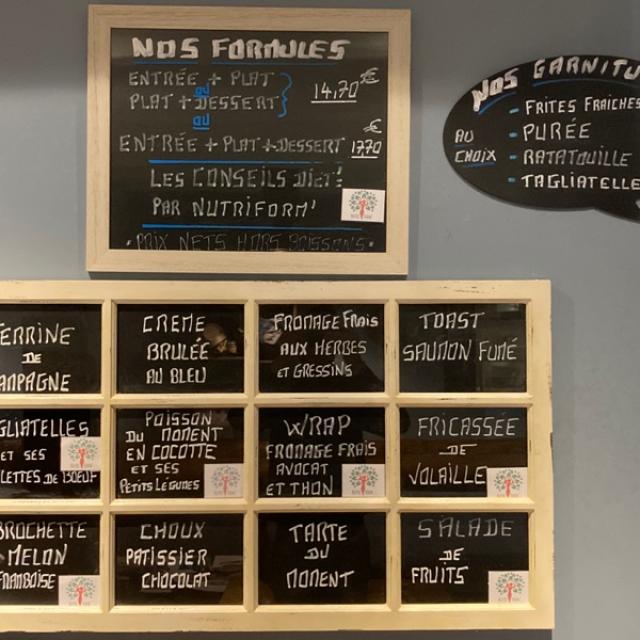 NOS FORMULES
ENTRÉE + PLAT
ou
PLAT + DESSERT
14,70€
ou
ENTRÉE + PLAT + DESSERT 17,70€
LES CONSEILS DIET'
PAR NUTRIFORM'
• PRIX NETS HORS BOISSONS •
NOS GARNITU
AU
CHOIX
- FRITES FRAICHES
- PURÉE
- RATATOUILLE
- TAGLIATELLE
ERRINE
DE
AMPAGNE
CREME
BRULÉE
AU BLEU
FROMAGE FRAIS
AUX HERBES
ET GRESSINS
TOAST
SAUMON FUMÉ
GLIATELLES
ET SES
LETTES DE BOEUF
POISSON
DU MOMENT
EN COCOTTE
ET SES
PETITS LÉGUMES
WRAP
FROMAGE FRAIS
AVOCAT
ET THON
FRICASSÉE
DE
VOLAILLE
BROCHETTE
MELON
FRAMBOISE
CHOUX
PATISSIER
CHOCOLAT
TARTE
DU
MOMENT
SALADE
DE
FRUITS